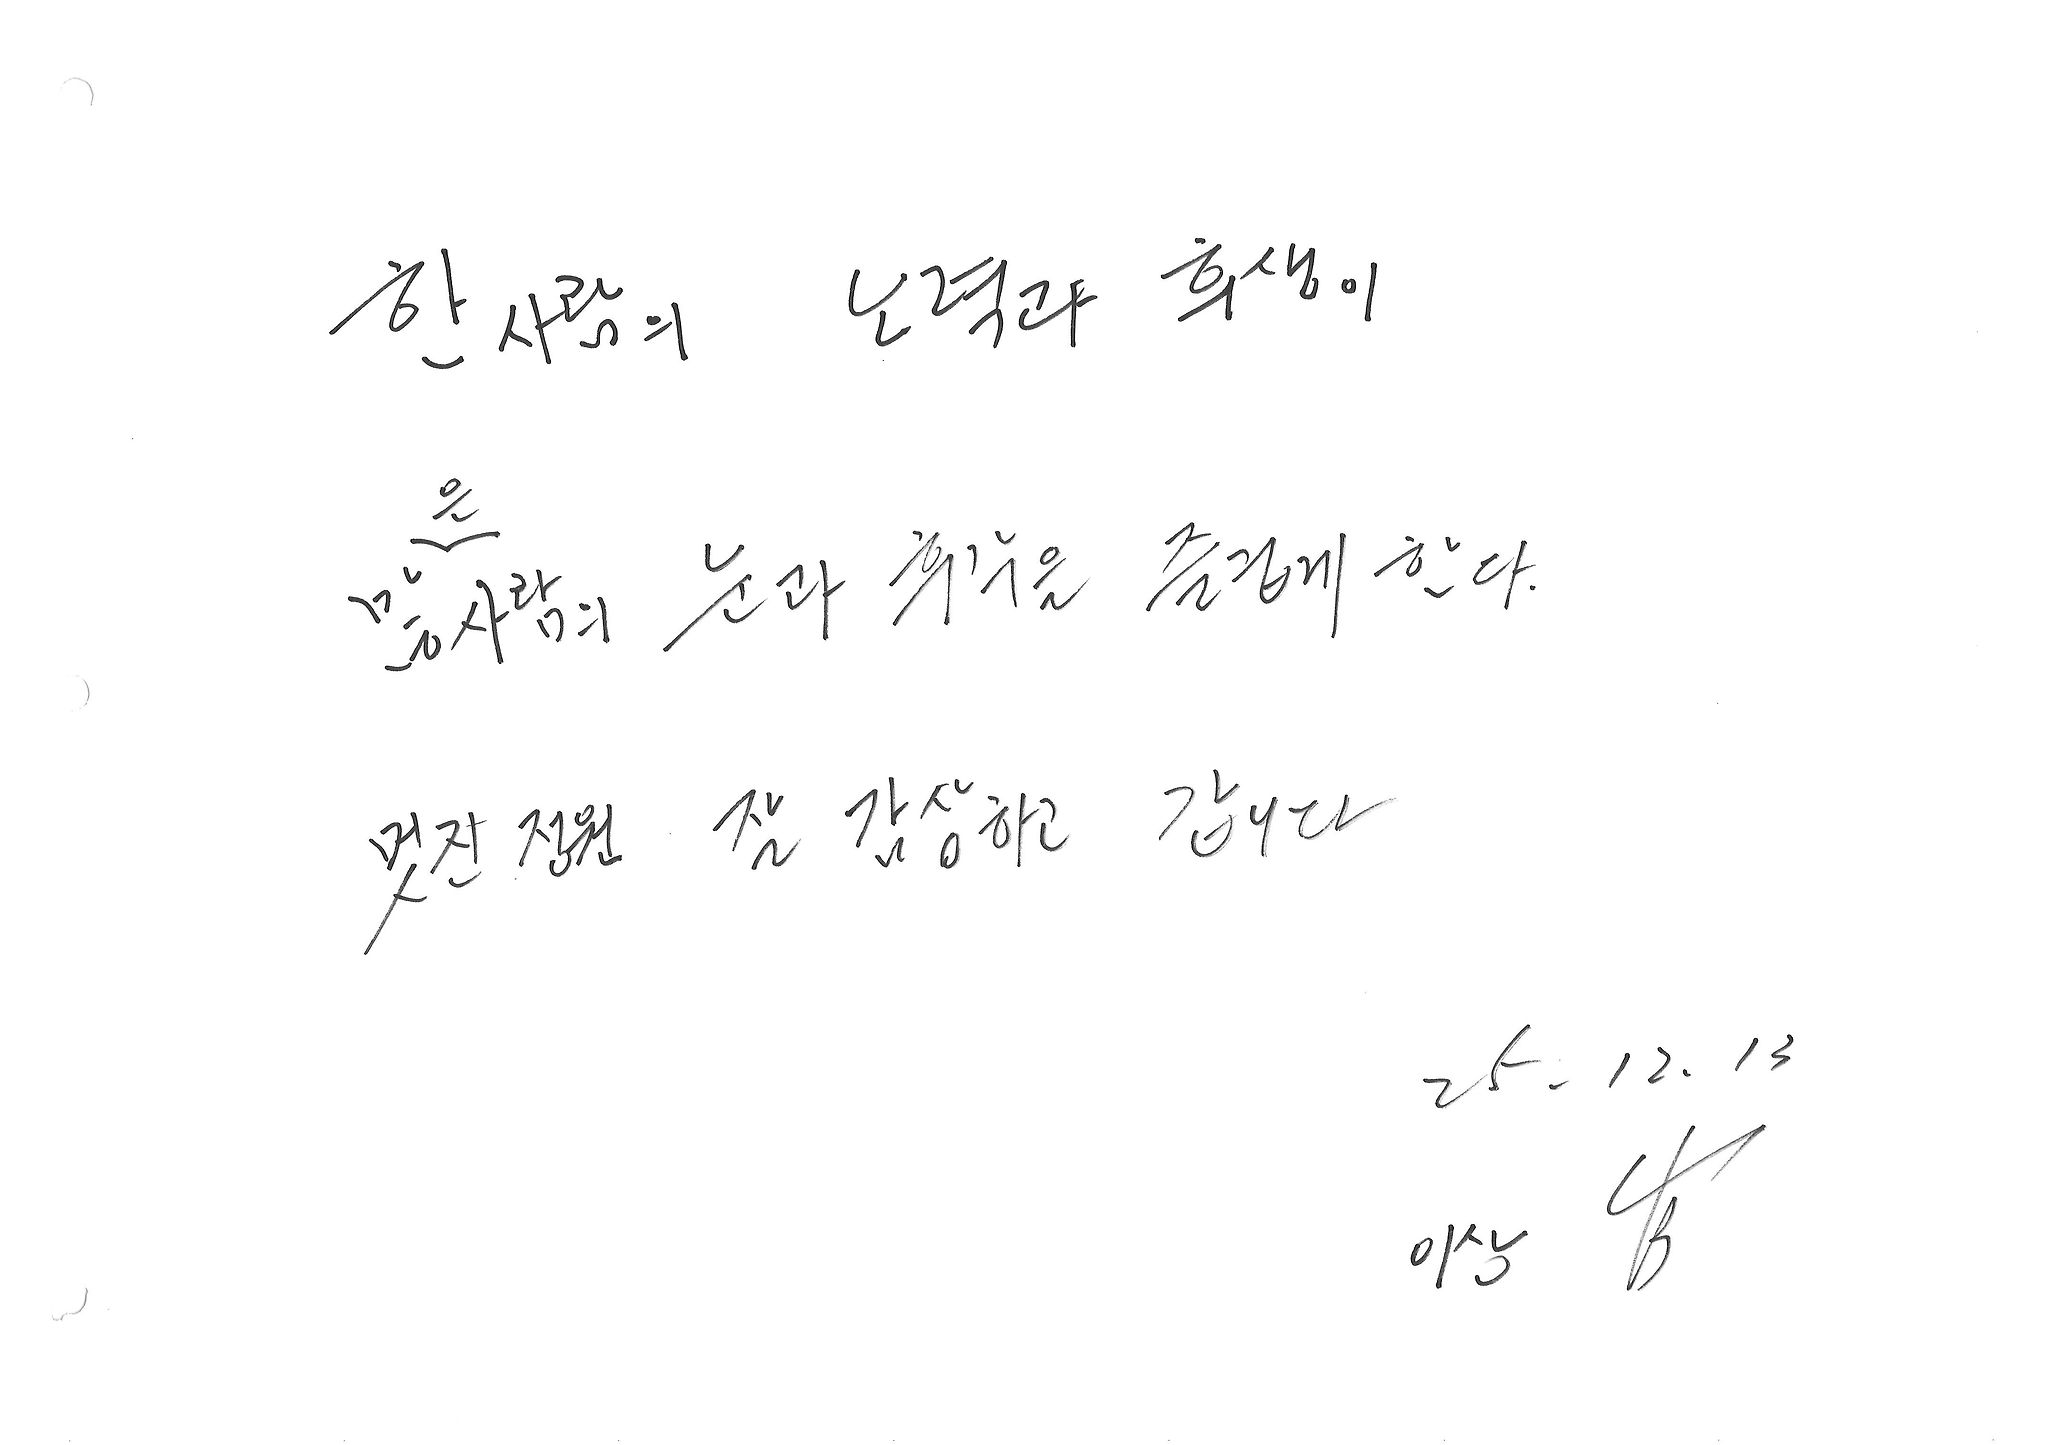 한 사람의 노력과 희생이
많은 사람의 눈과 휘각을 즐겁게 한다.
멋진 정원 잘 감상하고 갑니다
25. 12. 13
이상